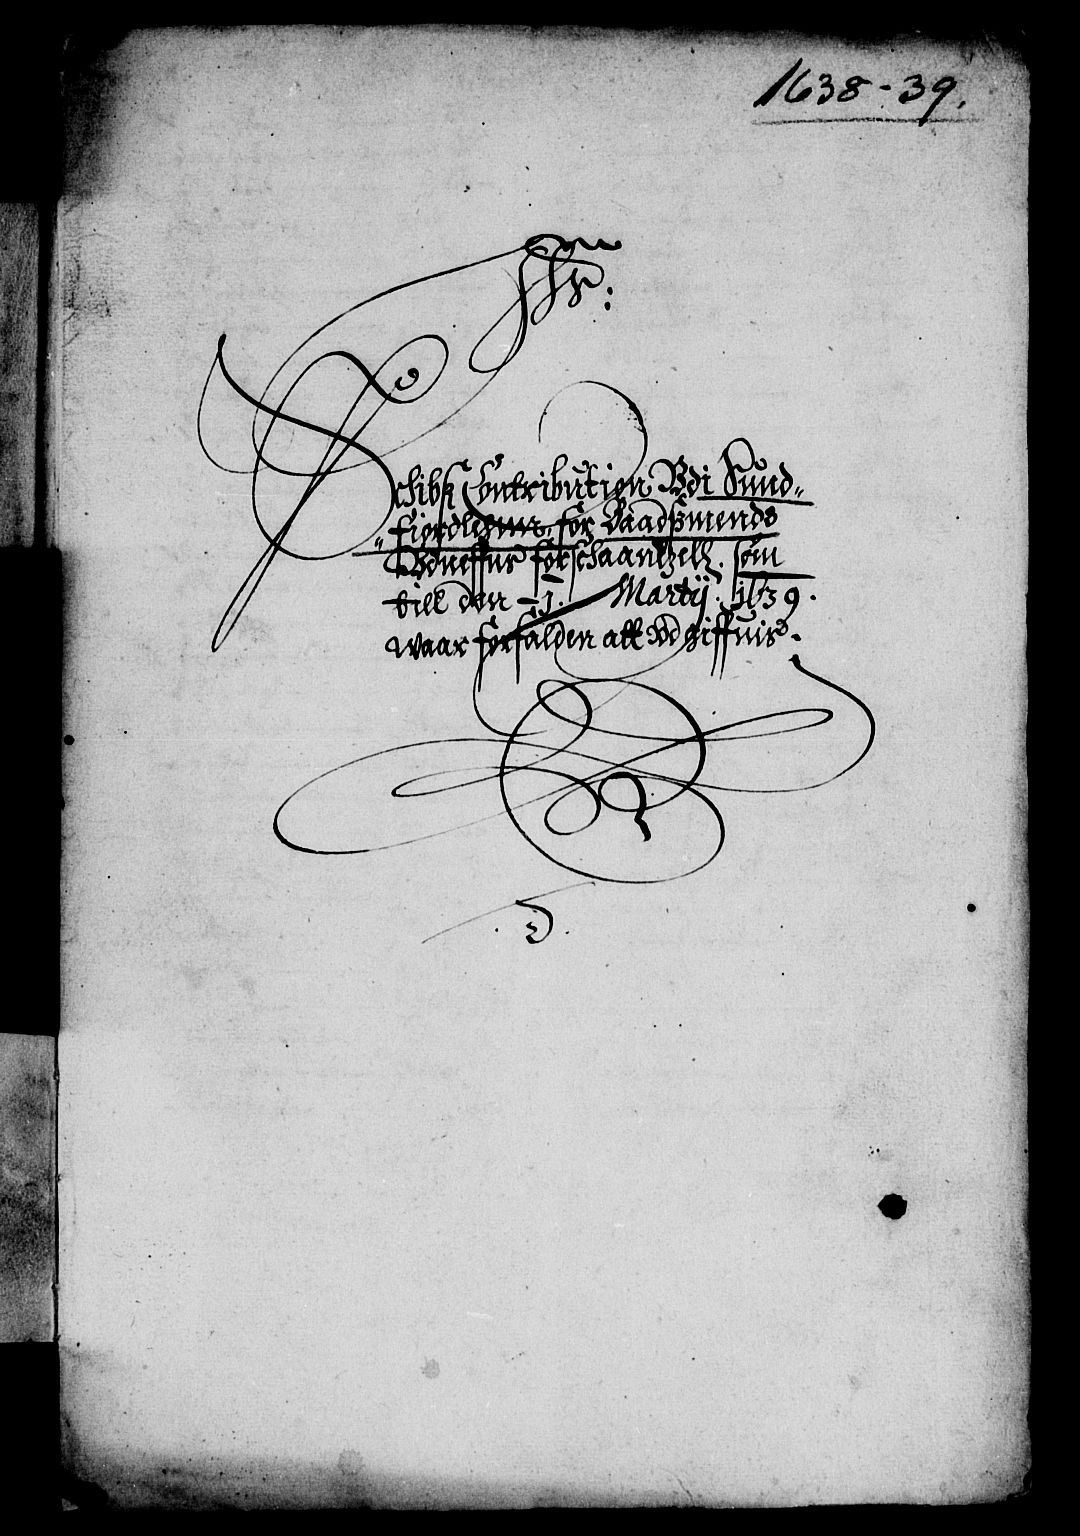 1638-39.
Schibs Contribution Udi Sund=
=Fiordlehnn, for Baadsmends
Udneffns forschaanhzell, som
till den 1. Martij. 1639.
waar forfalden att Udgiffuis.